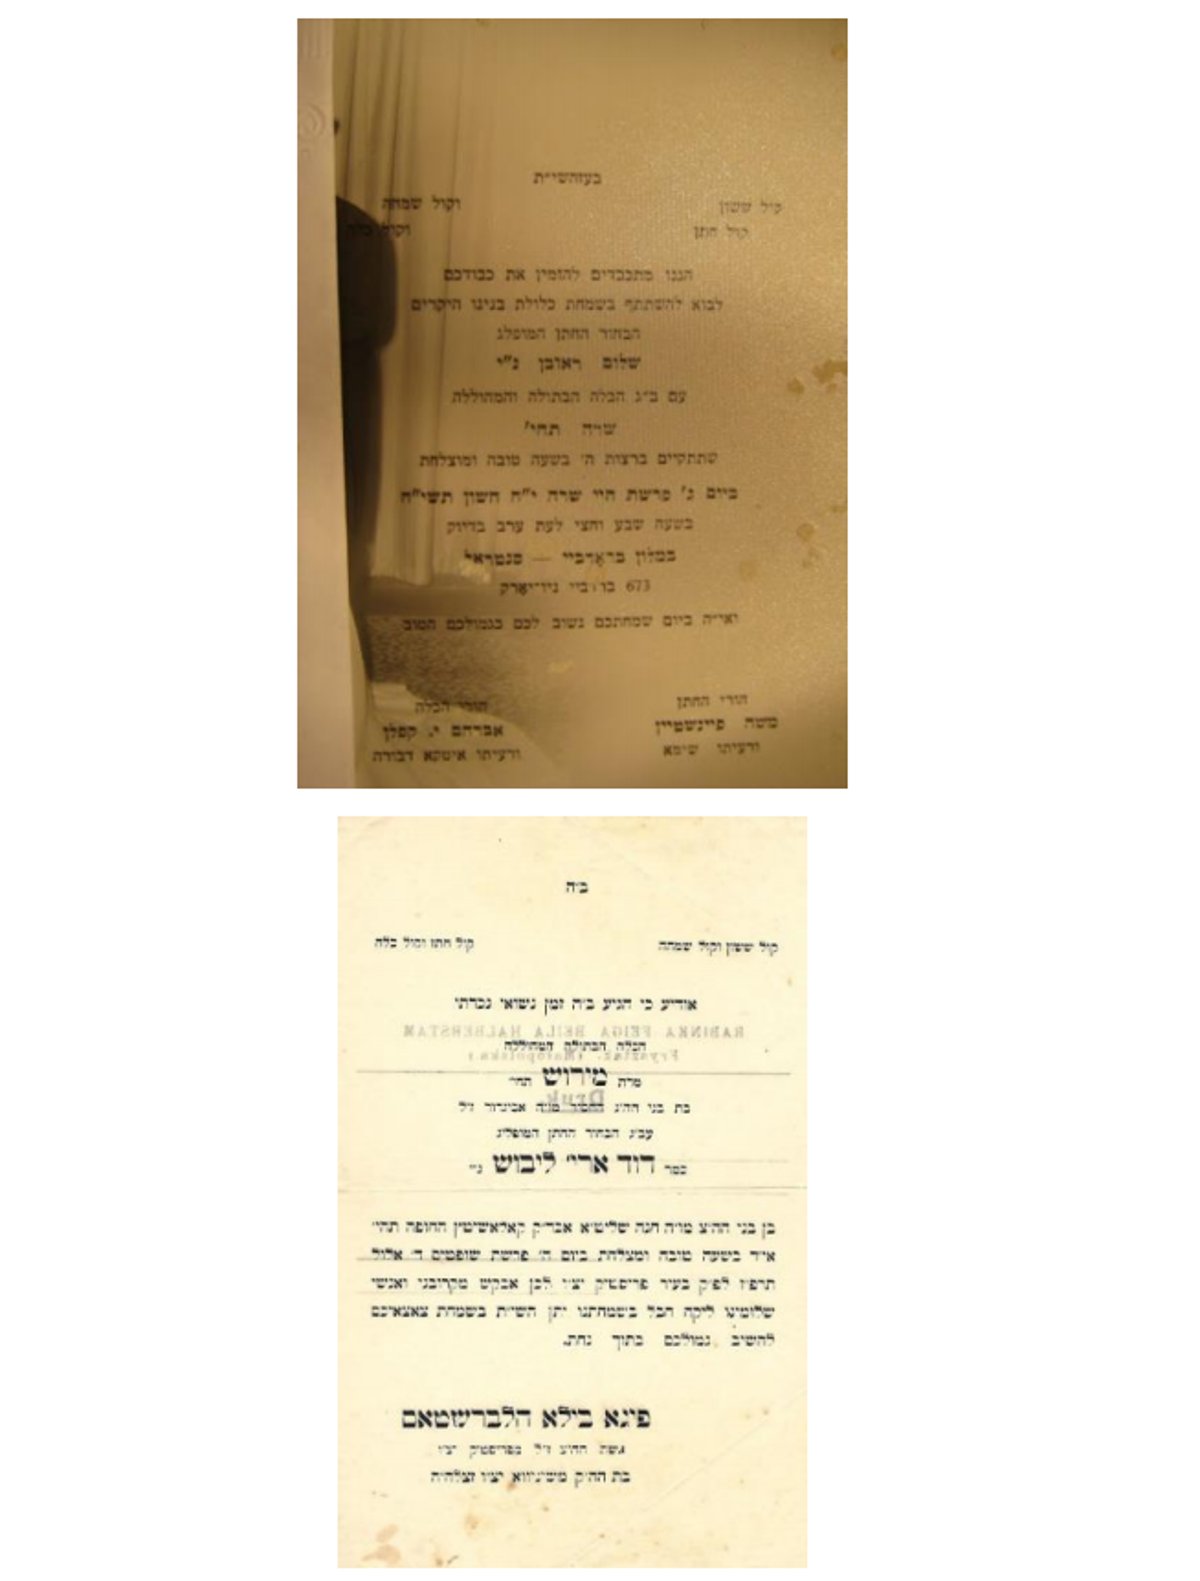 בעזהשי״ת
קול ששון וקול שמחה
קול חתן וקול כלה
הננו מתכבדים להזמין את כבודכם
לבוא להשתתף בשמחת כלולת בנינו היקרים
הבחור החתן המופלג
שלום ראובן נ״י
עם ב״ג הכלה הבתולה והמהוללה
שרה תחי׳
שתתקיים ברצות ה׳ בשעה טובה ומוצלחת
ביום ג׳ פרשת חיי שרה י״ח חשון תשי״ח
בשעה שבע וחצי לעת ערב בדיוק
במלון בראָדביי — סנטראל
673 ניו־יאָרק
ואי״ה ביום שמחתכם נשיב לכם כגמולכם הטוב
הורי החתן
משה פיינשטיין
ורעיתו שימא
הורי הכלה
אברהם י. קפלן
ורעיתו איטקא דבורה
ב״ה
קול ששון וקול שמחה קול חתן וקול כלה
אודיע כי הגיע ב״ה זמן נשואי נכדתי
RABINKA FEIGA BEILA HALBERSTAM
הכלה הבתולה המהוללה
Frysztak. (Małopolska)
מרת מירוש תחי׳
Druk.
בת בני הה״ג החסיד מו״ה אביגדור ז״ל
עב״ג הבחור החתן המופלג
כמר דוד ארי׳ ליבוש ני״
בן בני הה״צ מו״ה חנה שליט״א אבד״ק קאלאשיטץ החופה תהי׳
אי״ה בשעה טובה ומצלחת ביום ה׳ פרשת שופטים ד׳ אלול
תרפ״ז לפ״ק בעיר פריסטיק יצ״ו לכן אבקש מקרובני ואנשי
שלומינו ליקח חבל בשמחתנו יתן השי״ת בשמחת צאצאיכם
להשיב גמולכם בתוך נחת.
פיגא בילא הלברשטאם
אשת הה״צ ז״ל מפריסטיק יצ״ו
בת הה״ק משינאווא יצ״ו זצלה״ה